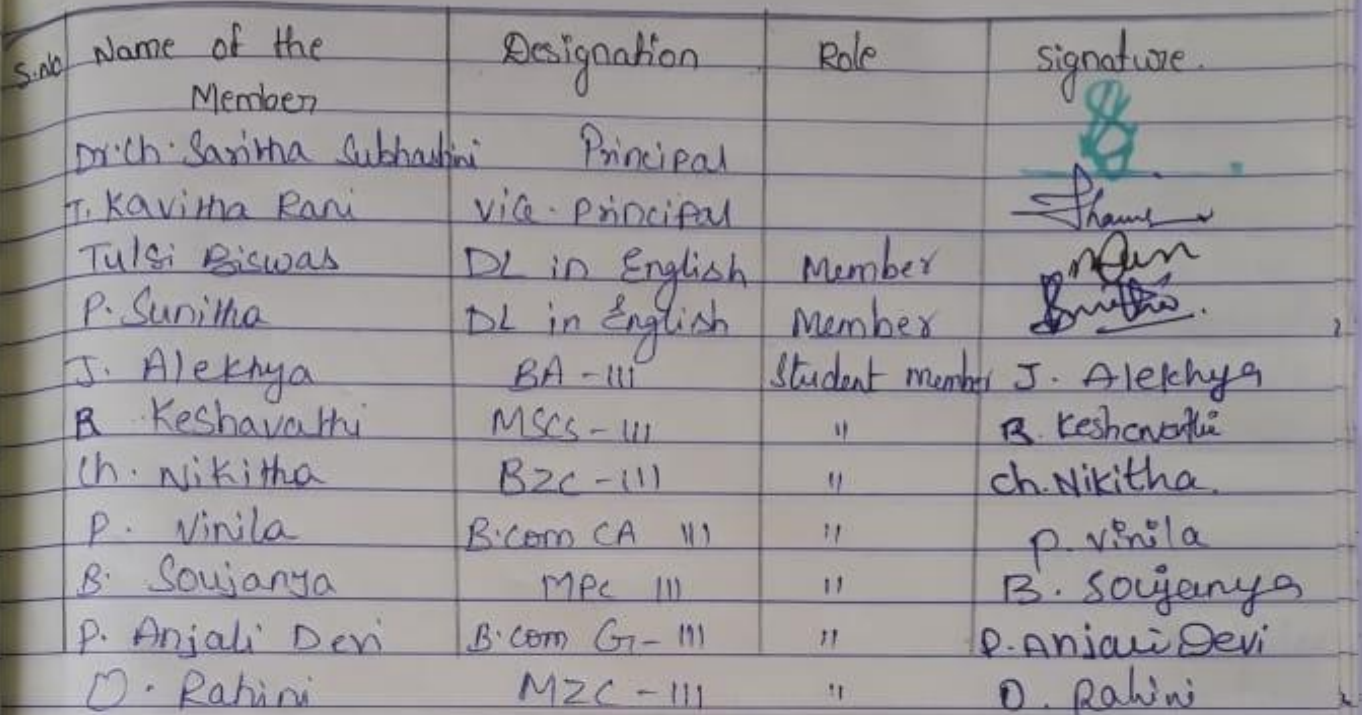 S.no Name of the Designation Role Signature.
Member
Dr.Ch. Saritha Subhashini Principal
T. Kavitha Rani Vice-Principal
Tulsi Biswas DL in English Member
P. Sunitha DL in English Member
J. Alekhya BA-III Student member J. Alekhya
B Keshavathi MSCS-III " B. Keshavathi
Ch. Nikitha BZC-III " Ch. Nikitha.
P. Vinila B.com CA III " P. Vinila
B. Soujanya MPC III " B. Soujanya
P. Anjali Devi B.com G-III " P. Anjali Devi
O. Rahini MZC-III " O. Rahini